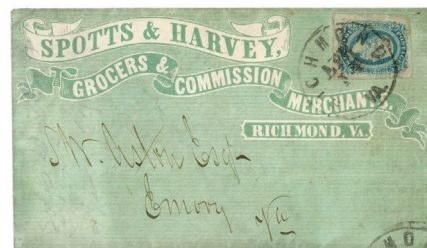 SPOTTS & HARVEY,
GROCERS & COMMISSION MERCHANTS,
RICHMOND, VA.
RICHMOND VA.
W. Aston Esqr
Emory Va